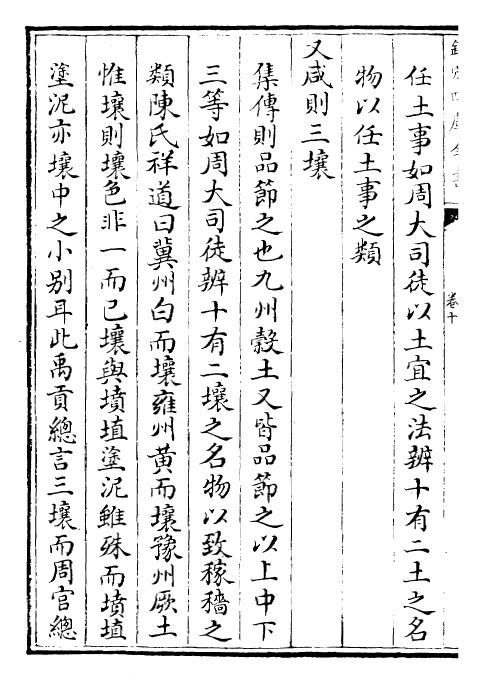 欽定四庫全書
卷十
任土事如周大司徒以土宜之法辨十有二土之名
物以任土事之類
又咸則三壤
集傳則品節之也九州穀土又皆品節之以上中下
三等如周大司徒辨十有二壤之名物以致稼穡之
類陳氏祥道曰冀州白而壤雍州黃而壤豫州厥土
惟壤則壤色非一而已壤與墳埴塗泥雖殊而墳埴
塗泥亦壤中之小别耳此禹貢總言三壤而周官總